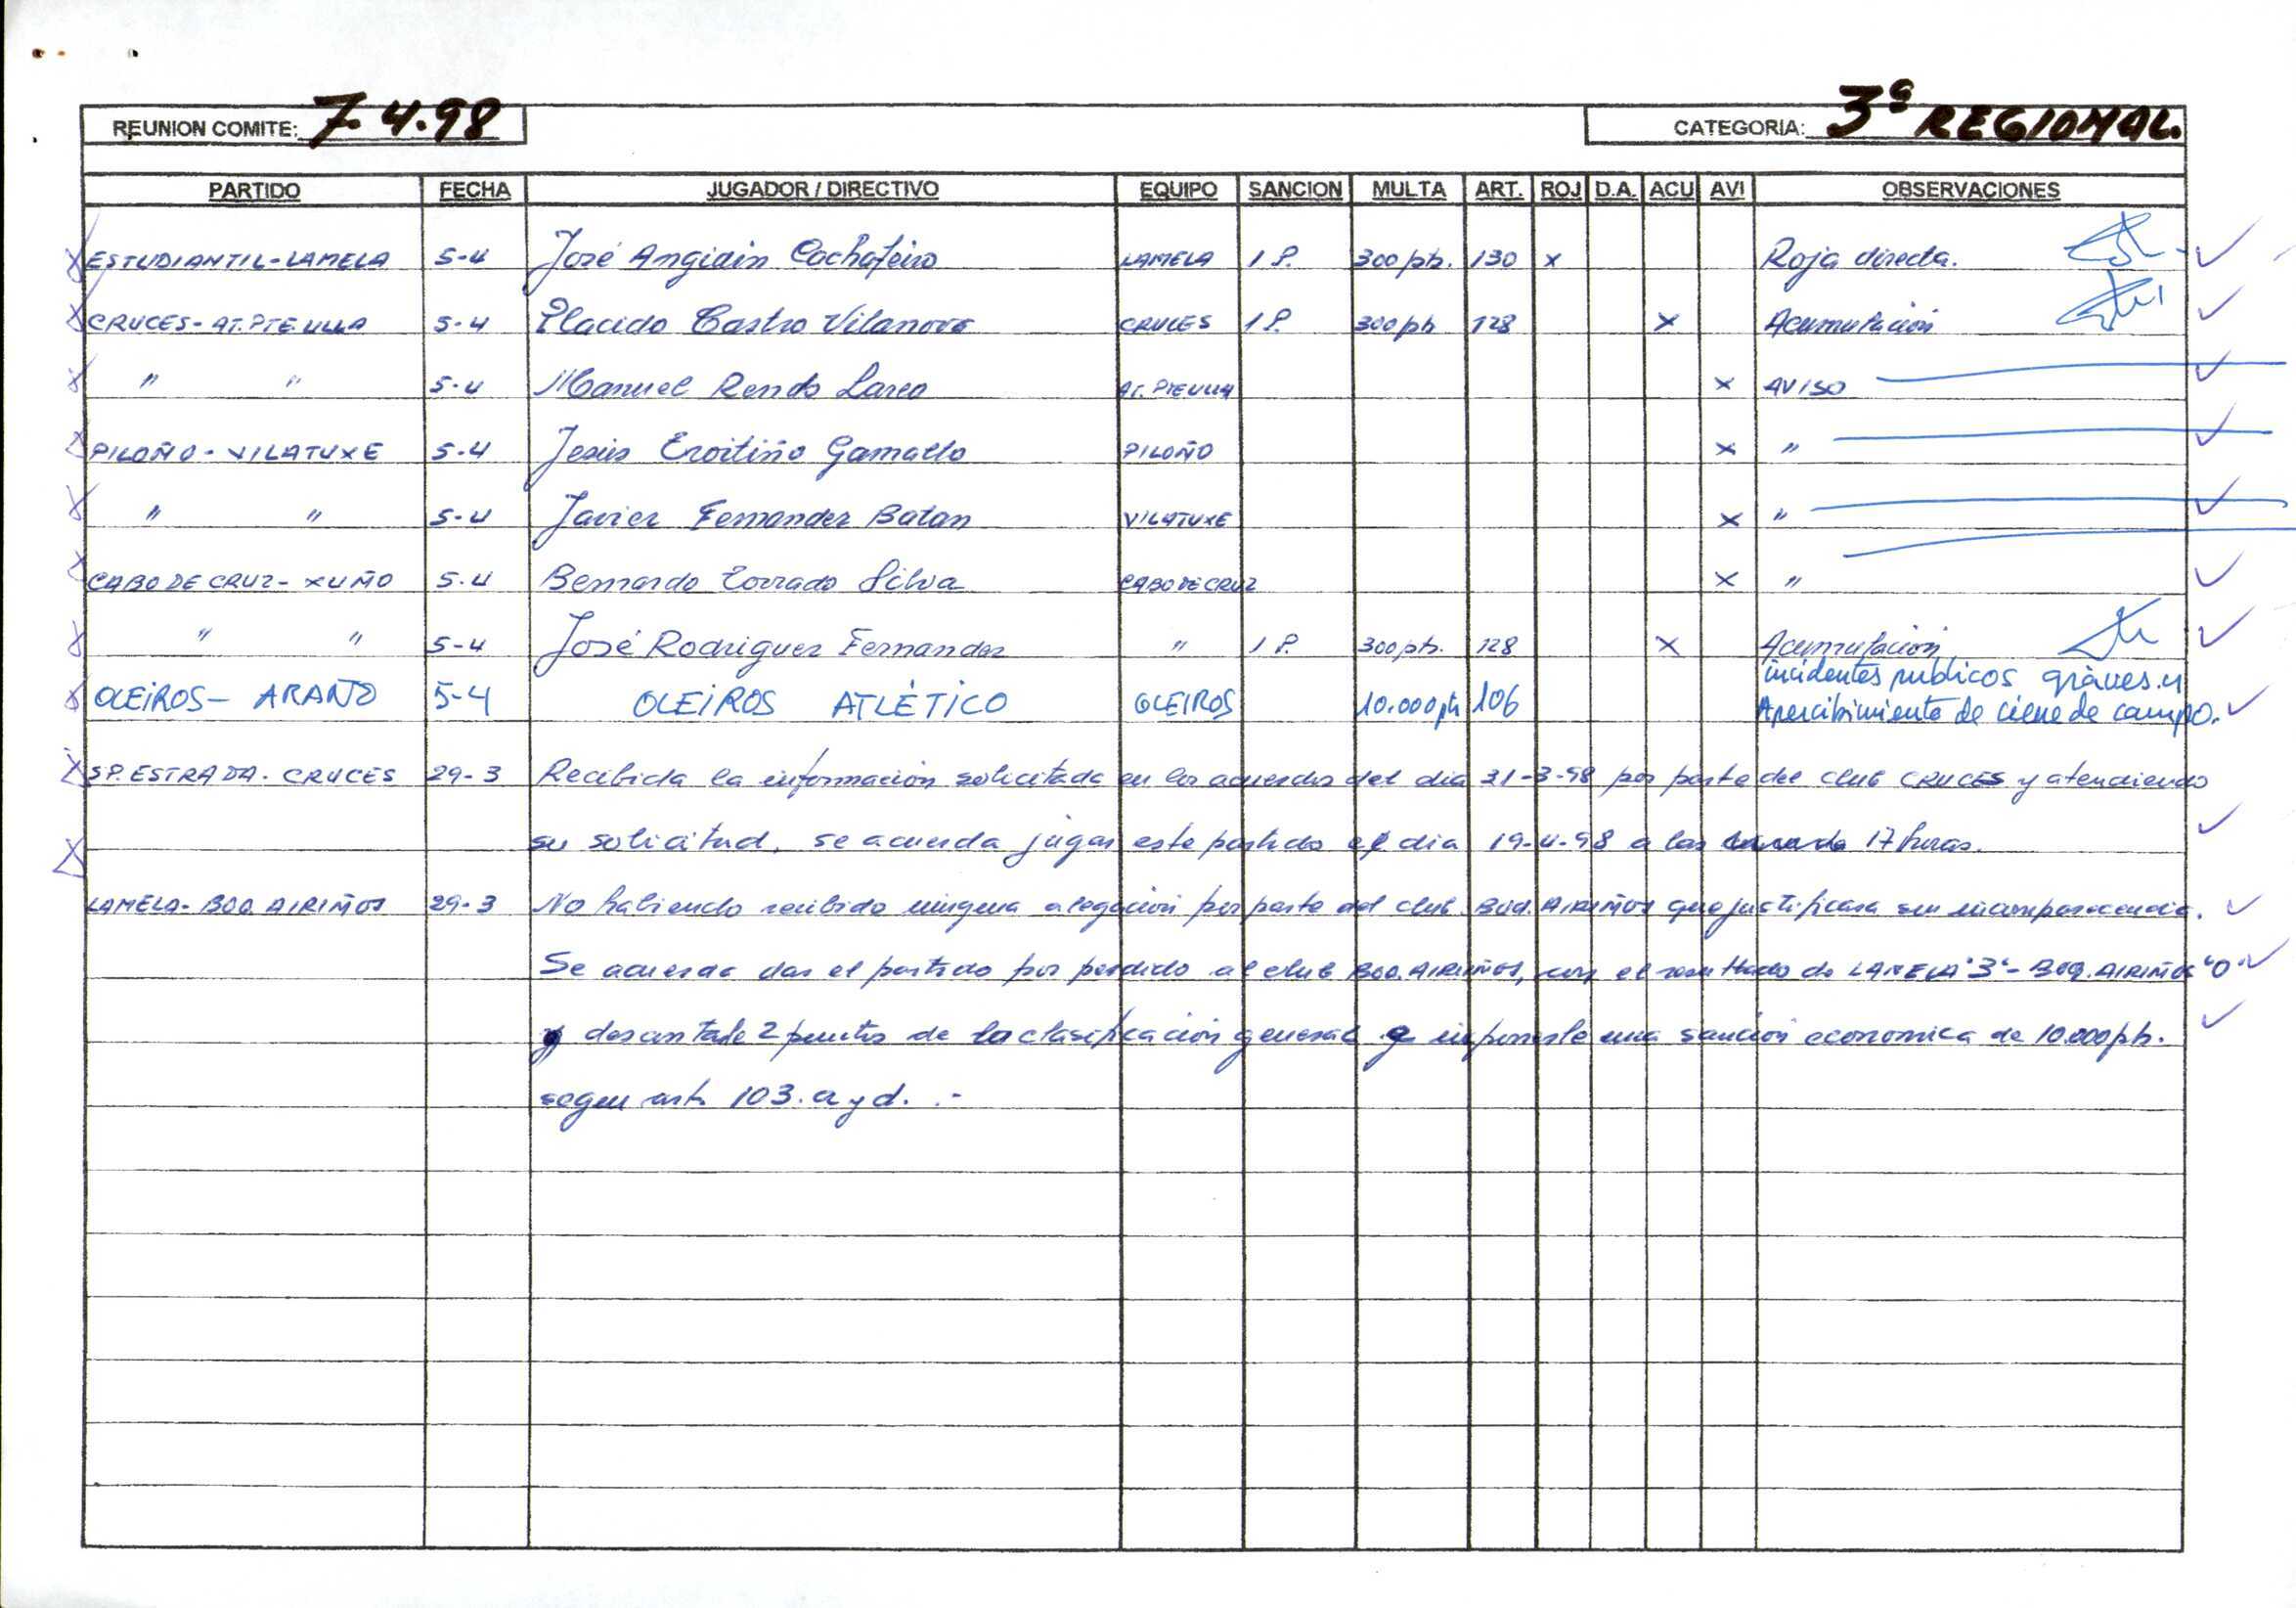 REUNION COMITE: 7-4-98 CATEGORIA: 3ª REGIONAL.
PARTIDO FECHA JUGADOR / DIRECTIVO EQUIPO SANCION MULTA ART. ROJ D.A. ACU AVI OBSERVACIONES
ESTUDIANTIL-LAMELA 5-4 José Cachafeiro LAMELA 1 P. 300 pts. 130 x Roja directa.
CRUCES-AT.PTE ULLA 5-4 Placido Castro Vilanova CRUCES 1 P. 300 pts 128 x Acumulación
" " 5-4 Manuel Rendo AT. PTE ULLA x AVISO
PILOÑO-VILATUXE 5-4 Jesús Gamallo PILOÑO x "
" " 5-4 Javier Fernandez Batan VILATUXE x "
CABO DE CRUZ-XUÑO 5-4 Bernardo Silva CABO DE CRUZ x "
" " 5-4 José Rodriguez Fernandez " 1 P. 300 pts. 128 x Acumulación
OLEIROS- ARAÑO 5-4 OLEIROS ATLÉTICO OLEIROS 10.000 pts 106 incidentes publicos graves y
Apercibimiento de cierre de campo.
SP. ESTRADA- CRUCES 29-3 Recibida la información solicitada en los acuerdos del dia 31-3-98 por parte del club CRUCES y atendiendo
su solicitud, se acuerda jugar este partido el dia 19-4-98 a las 17 horas.
LAMELA- BOQ. AIRIÑOS 29-3 No habiendo recibido ninguna alegación por parte del club BOQ. AIRIÑOS que justificara su incomparecencia.
Se acuerda dar el partido por perdido al club BOQ. AIRIÑOS, con el resultado de LAMELA "3"- BOQ. AIRIÑOS "0"
y descontarle 2 puntos de la clasificación general e imponerle una sanción economica de 10.000 pts.
segun art. 103. a y d. .-